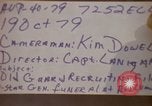 AVP-40-79 7252EC
19 Oct 79
Cameraman: Kim Dowel
Director: Capt. Langman
Subject:
Old Guard Recruiting
Star Gen. funeral at